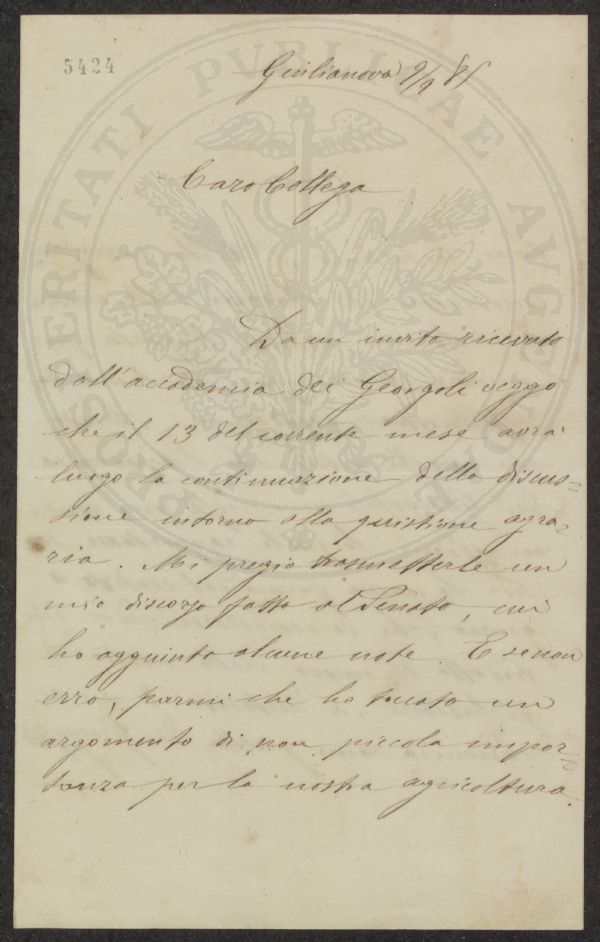 5424
Giulianova 9/9 85
Caro Collega
Da un invito ricevuto
dall'accademia dei Georgofili veggo
che il 13 del corrente mese avrà
luogo la continuazione della discus=
sione intorno alla quistione agra=
ria. Mi pregio trasmetterle un
mio discorso fatto al Senato, cui
ho aggiunto alcune note. E se non
erro, parmi che ho toccato un
argomento di non piccola impor=
tanza per la nostra agricoltura.
PROSPERITATI PVBLICAE AVGENDAE